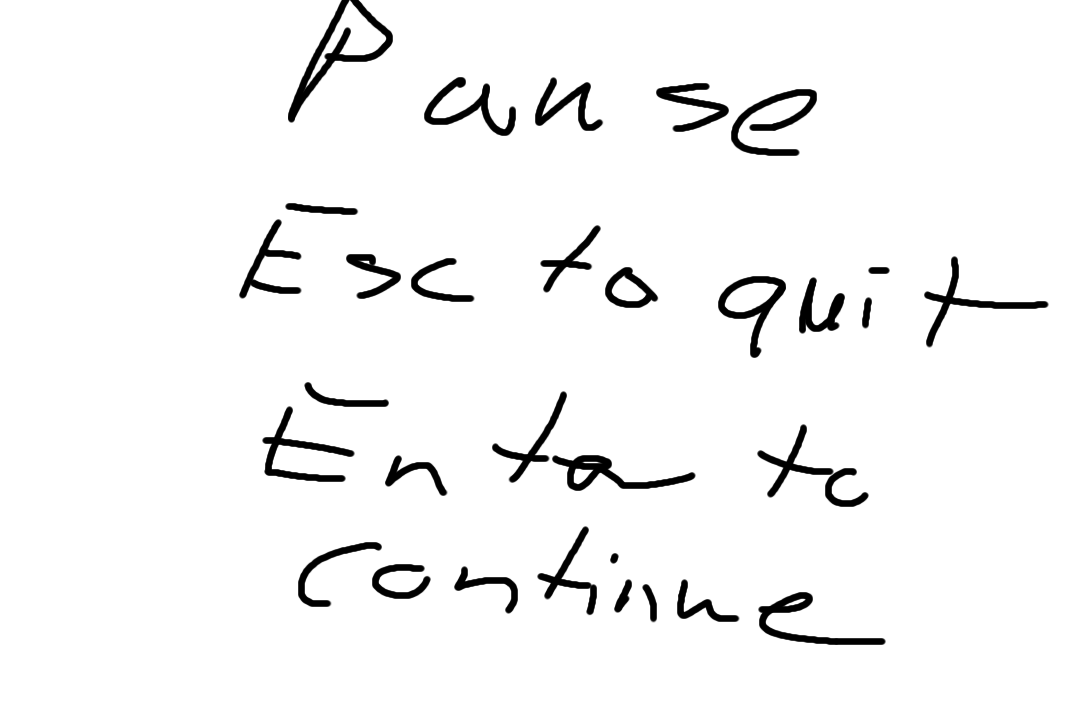 Pause
Esc to quit
Enter to
continue